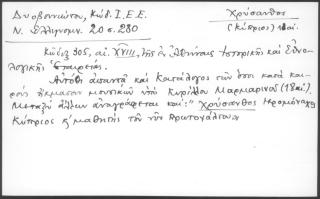 Δυοβουνιώτου, Κώδ. Ι.Ε.Ε. Χρύσανθος
Ν. Ἑλληνομν. 20 σ. 230 (Κύπριος) 18 αἰ.
Κῶδιξ 305, αἰ. XVIII, τῆς ἐν Ἀθήναις Ἱστορικῆς καὶ Ἐθνο
λογικῆς Ἑταιρείας.
Αὐτόθι ἀπαντᾷ καὶ Κατάλογος τῶν ὅσοι κατὰ και-
ροὺς ἤκμασαν μουσικῶν ὑπὸ Κυρίλλου Μαρμαρινοῦ (18 αἰ.)
Μεταξὺ ἄλλων ἀναγράφεται καὶ: "Χρύσανθος Ἱερομόναχος
Κύπριος κ̀ μαθητὴς τοῦ νῦν Πρωτοψάλτου"